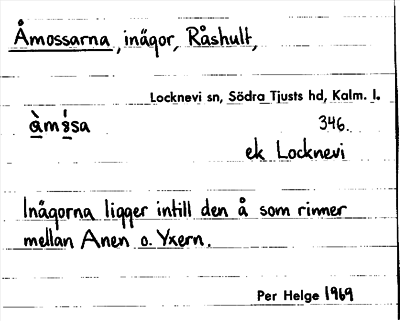 Åmossarna, inägor, Råshult,
Locknevi sn, Södra Tjusts hd, Kalm. l.
346.
ek Locknevi
Inägorna ligger intill den å som rinner
mellan Anen o. Yxern.
Per Helge 1969